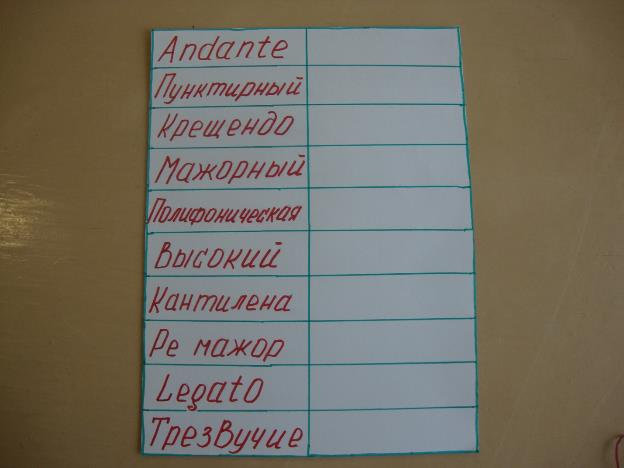 Andante
Пунктирный
Крещендо
Мажорный
Полифоническая
Высокий
Кантилена
Ре мажор
Legato
Трезвучие